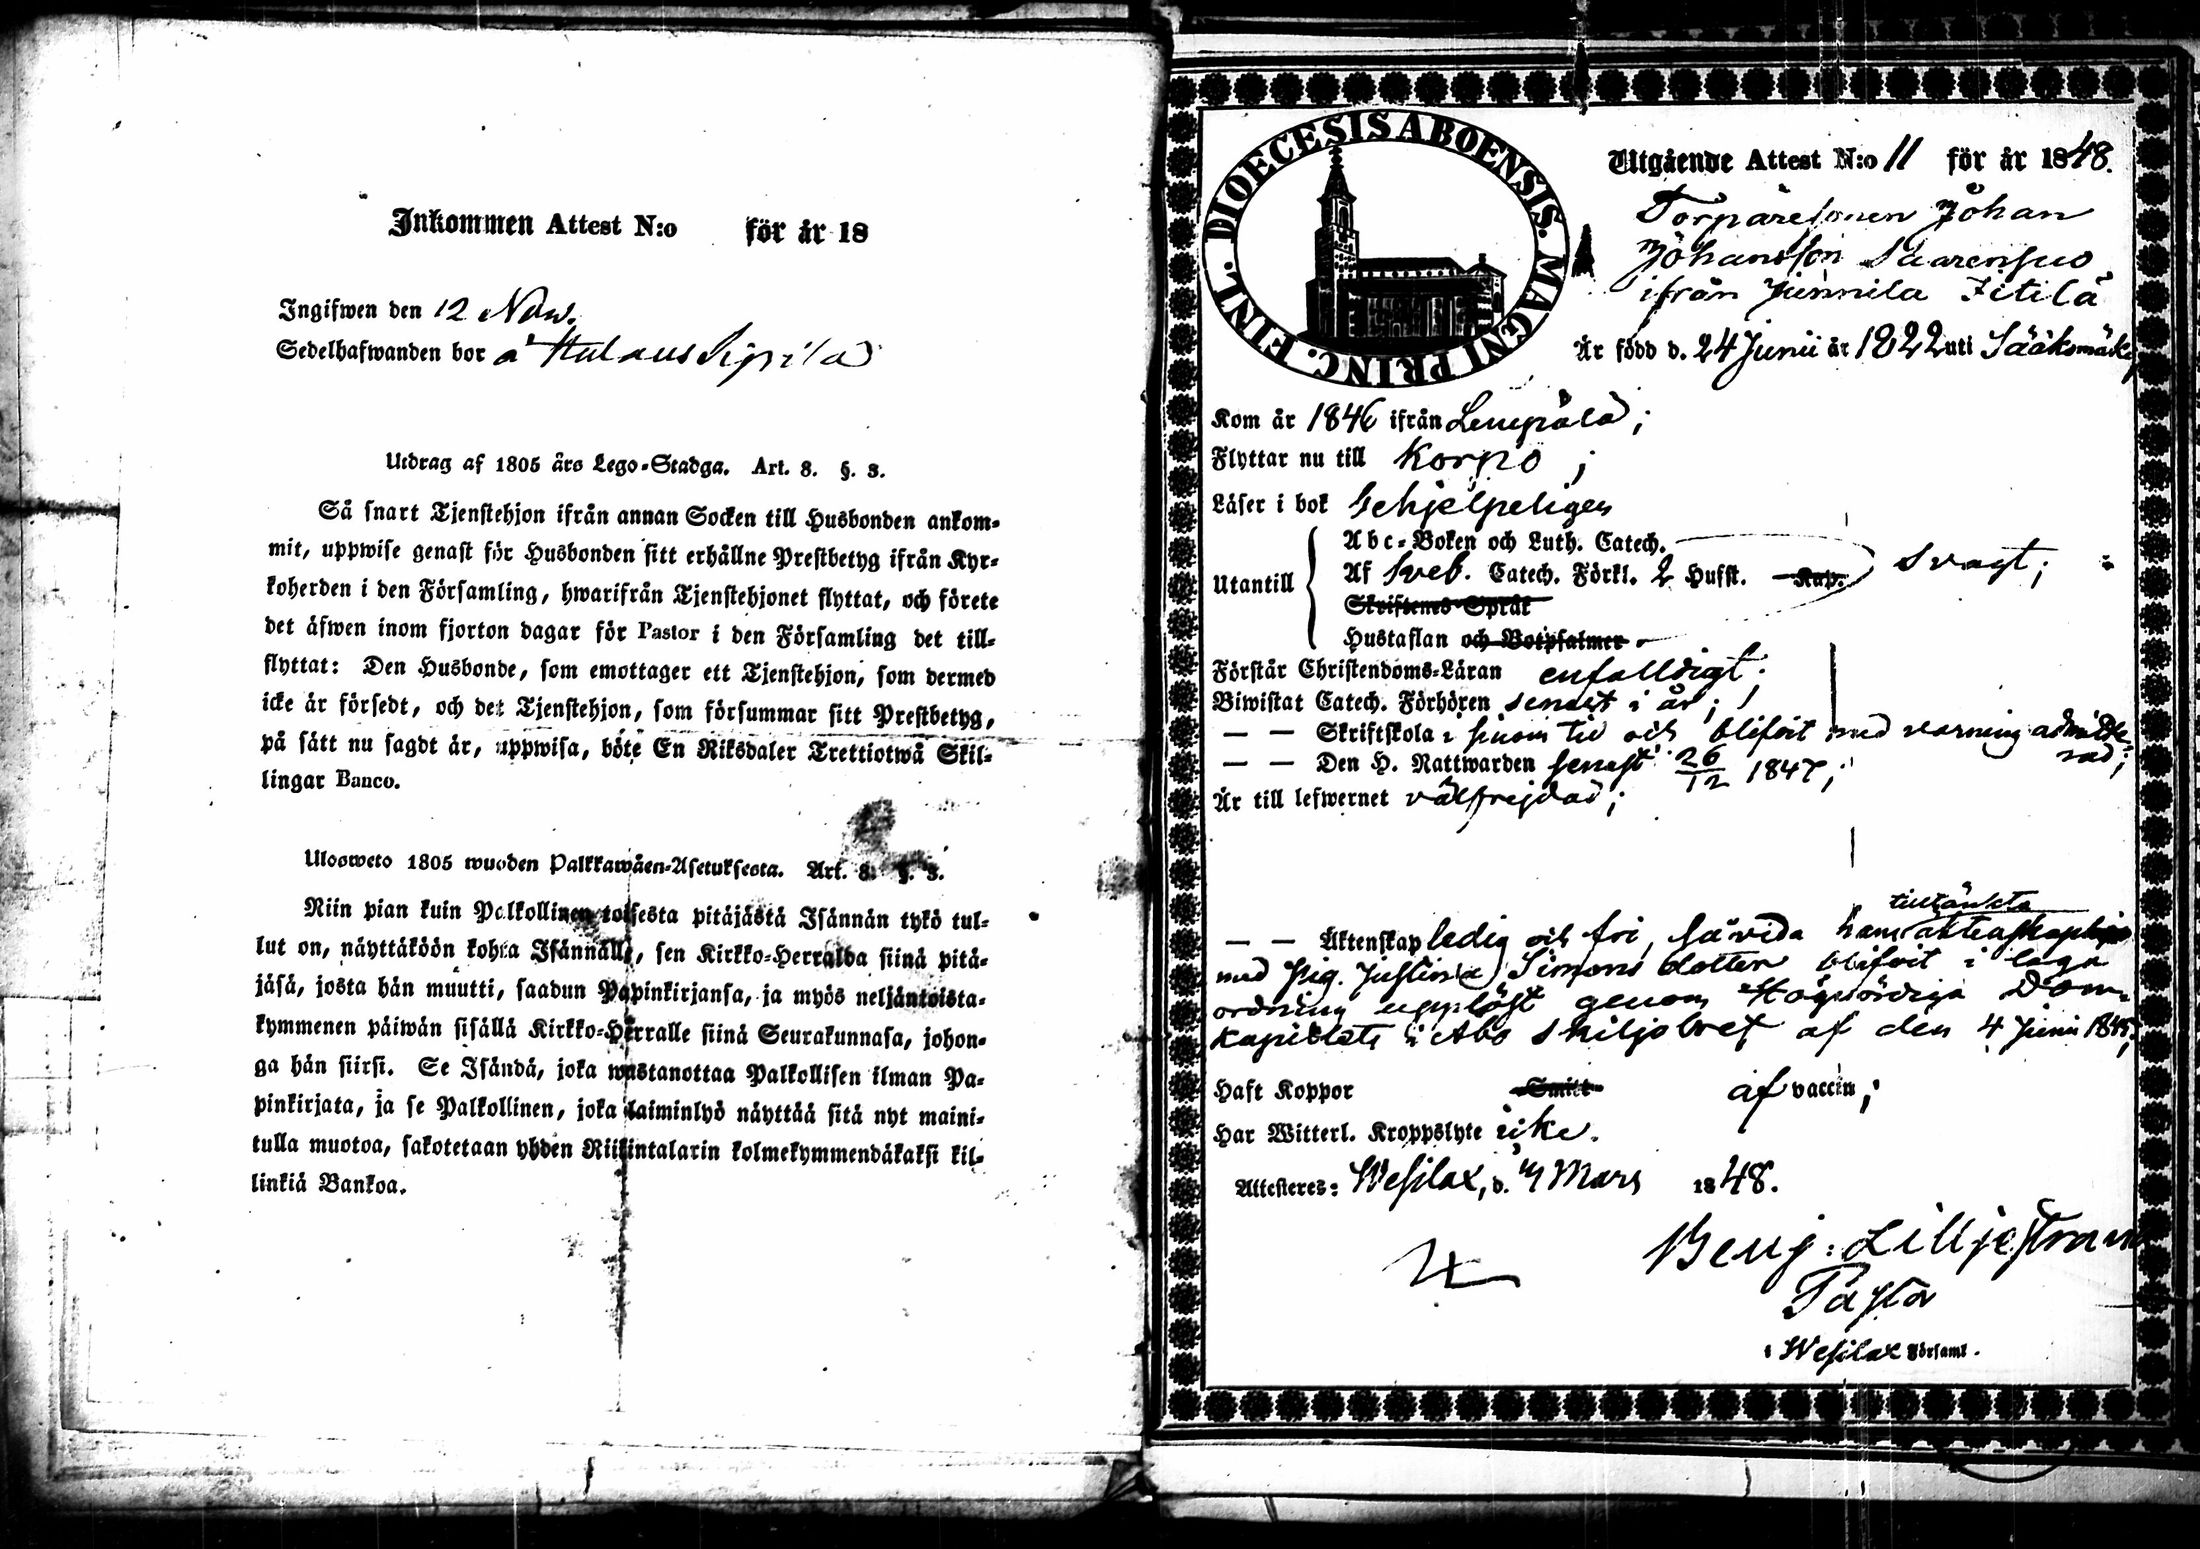 Inkommen Attest N:o för år 18
Ingifwen den 12 Nov.
Sedelhafwanden bor å Sipilä
Utdrag af 1805 års Lego-Stadga. Art. 8. §. 3.
Så snart Tjenstehjon ifrån annan Socken till Husbonden ankom-
mit, uppwise genast för Husbonden sitt erhållne Prestbetyg ifrån Kyr-
koherden i den Församling, hwarifrån Tjenstehjonet flyttat, och förete
det äfwen inom fjorton dagar för Pastor i den Församling det till-
flyttat: Den Husbonde, som emottager ett Tjenstehjon, som dermed
icke är försedt, och det Tjenstehjon, som försummar sitt Prestbetyg,
på sätt nu sagdt är, uppwisa, böte En Riksdaler Trettiotwå Skil-
lingar Banco.
Ulosweto 1805 wuoden Palkkawäen-Asetuksesta. Art. 8. §. 3.
Niin pian kuin Palkollinen toisesta pitäjästä Isännän tykö tul-
lut on, näyttäköön kohta Isännälle, sen Kirkko-Herralda siinä pitä-
jäsä, josta hän muutti, saadun Papinkirjansa, ja myös neljäntoista-
kymmenen päiwän sisällä Kirkko-Herralle siinä Seurakunnasa, johon-
ga hän siirsi. Se Isändä, joka wastanottaa Palkollisen ilman Pa-
pinkirjata, ja se Palkollinen, joka laiminlyö näyttää sitä nyt maini-
tulla muotoa, sakotetaan yhden Riikintalarin kolmekymmendäkaksi kil-
linkiä Bankoa.
DIOECESIS ABOENSIS. MAGNI PRINC. FINL.
Utgående Attest N:o 11 för år 1848.
Torparesonen Johan
Johansson Saarensuo
ifrån Junnila
Är född d. 24 Junii år 1822 uti Sääksmäki
Kom år 1846 ifrån Lempälä;
Flyttar nu till Korpo;
Läser i bok behjelpeligen
Utantill
Abc-Boken och Luth. Catech.
Af Sveb. Catech. Förkl. 2 Hufst. Kap. svagt;
Skriftenes Språk
Hustaflan och Botpsalmer
Förstår Christendoms-Läran enfalldigt;
Biwistat Catech. Förhören senast i år;
— — Skriftskola i sinom tid och blifvit med varning admitte-
rad;
— — Den H. Nattwarden senast 26/12 1847;
Är till lefwernet välfrejdad;
tilltänkta
— — Äktenskap ledig och fri, såvida hans äktenskap
med pig. Justina Simonsdotter blifvit i laga
ordning upplöst genom Högvördiga Dom-
kapitlets i Åbo skiljobref af den 4 Junii 1845;
Haft Koppor Smitt af vaccin;
Har Witterl. Kroppslyte icke.
Attesteres: Wesilax, d. Mars 1848.
Benj: Lilljestrand
Pastor
i Wesilax Församl.